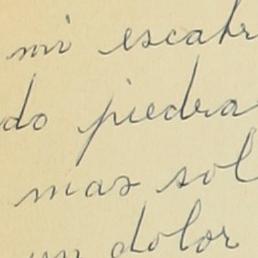 mi escabr
do piedra
mas sol
un dolor